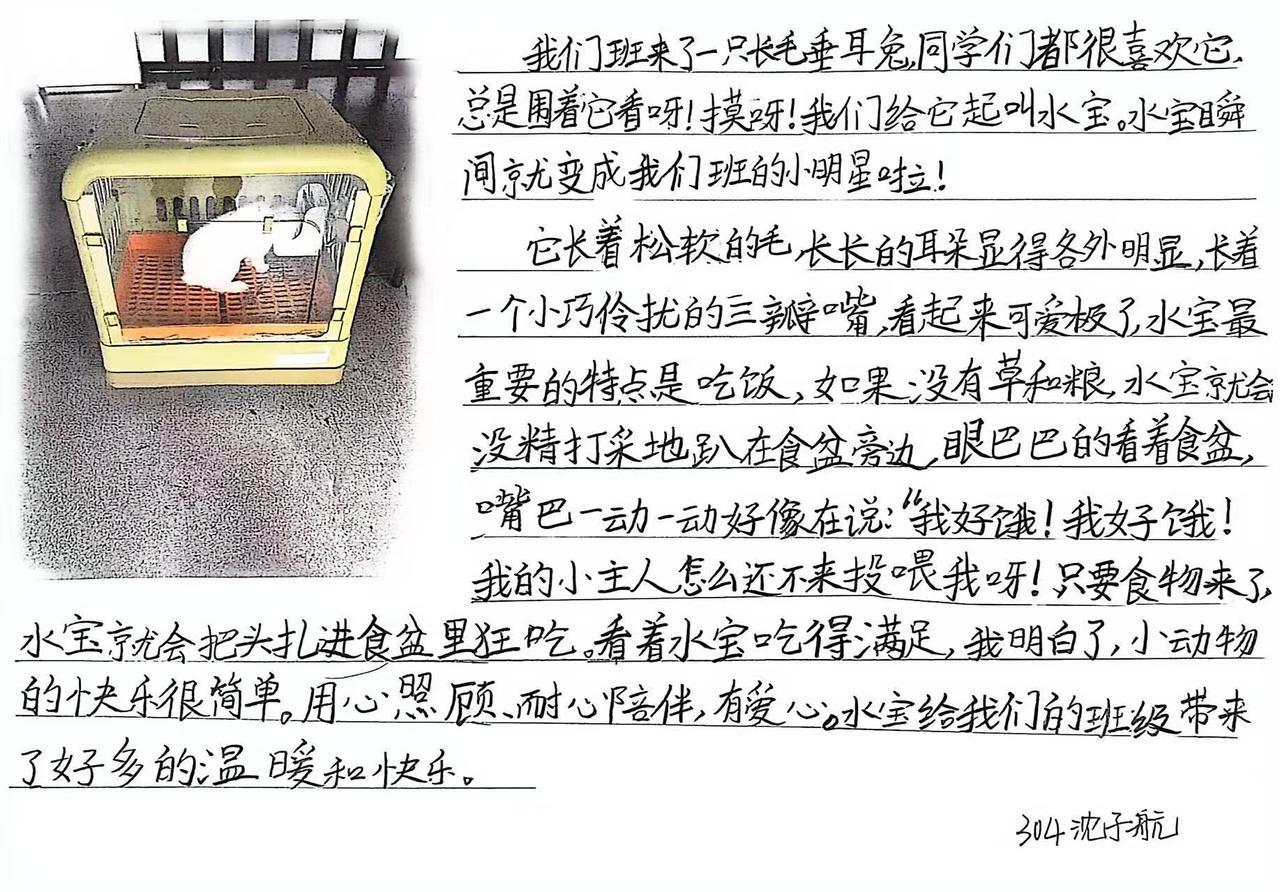 我们班来了一只长毛垂耳兔,同学们都很喜欢它,
总是围着它看呀!摸呀!我们给它起叫水宝。水宝瞬
间就变成我们班的小明星啦!
它长着松软的毛,长长的耳朵显得各外明显,长着
一个小巧伶扰的三瓣嘴,看起来可爱极了,水宝最
重要的特点是吃饭,如果没有草和粮,水宝就会
没精打采地趴在食盆旁边,眼巴巴的看着食盆,
嘴巴一动一动好像在说:“我好饿!我好饿!
我的小主人怎么还不来投喂我呀!只要食物来了,
水宝就会把头扎进食盆里狂吃。看着水宝吃得满足,我明白了,小动物
的快乐很简单。用心照顾、耐心陪伴,有爱心。水宝给我们的班级带来
了好多的温暖和快乐。
304沈子航